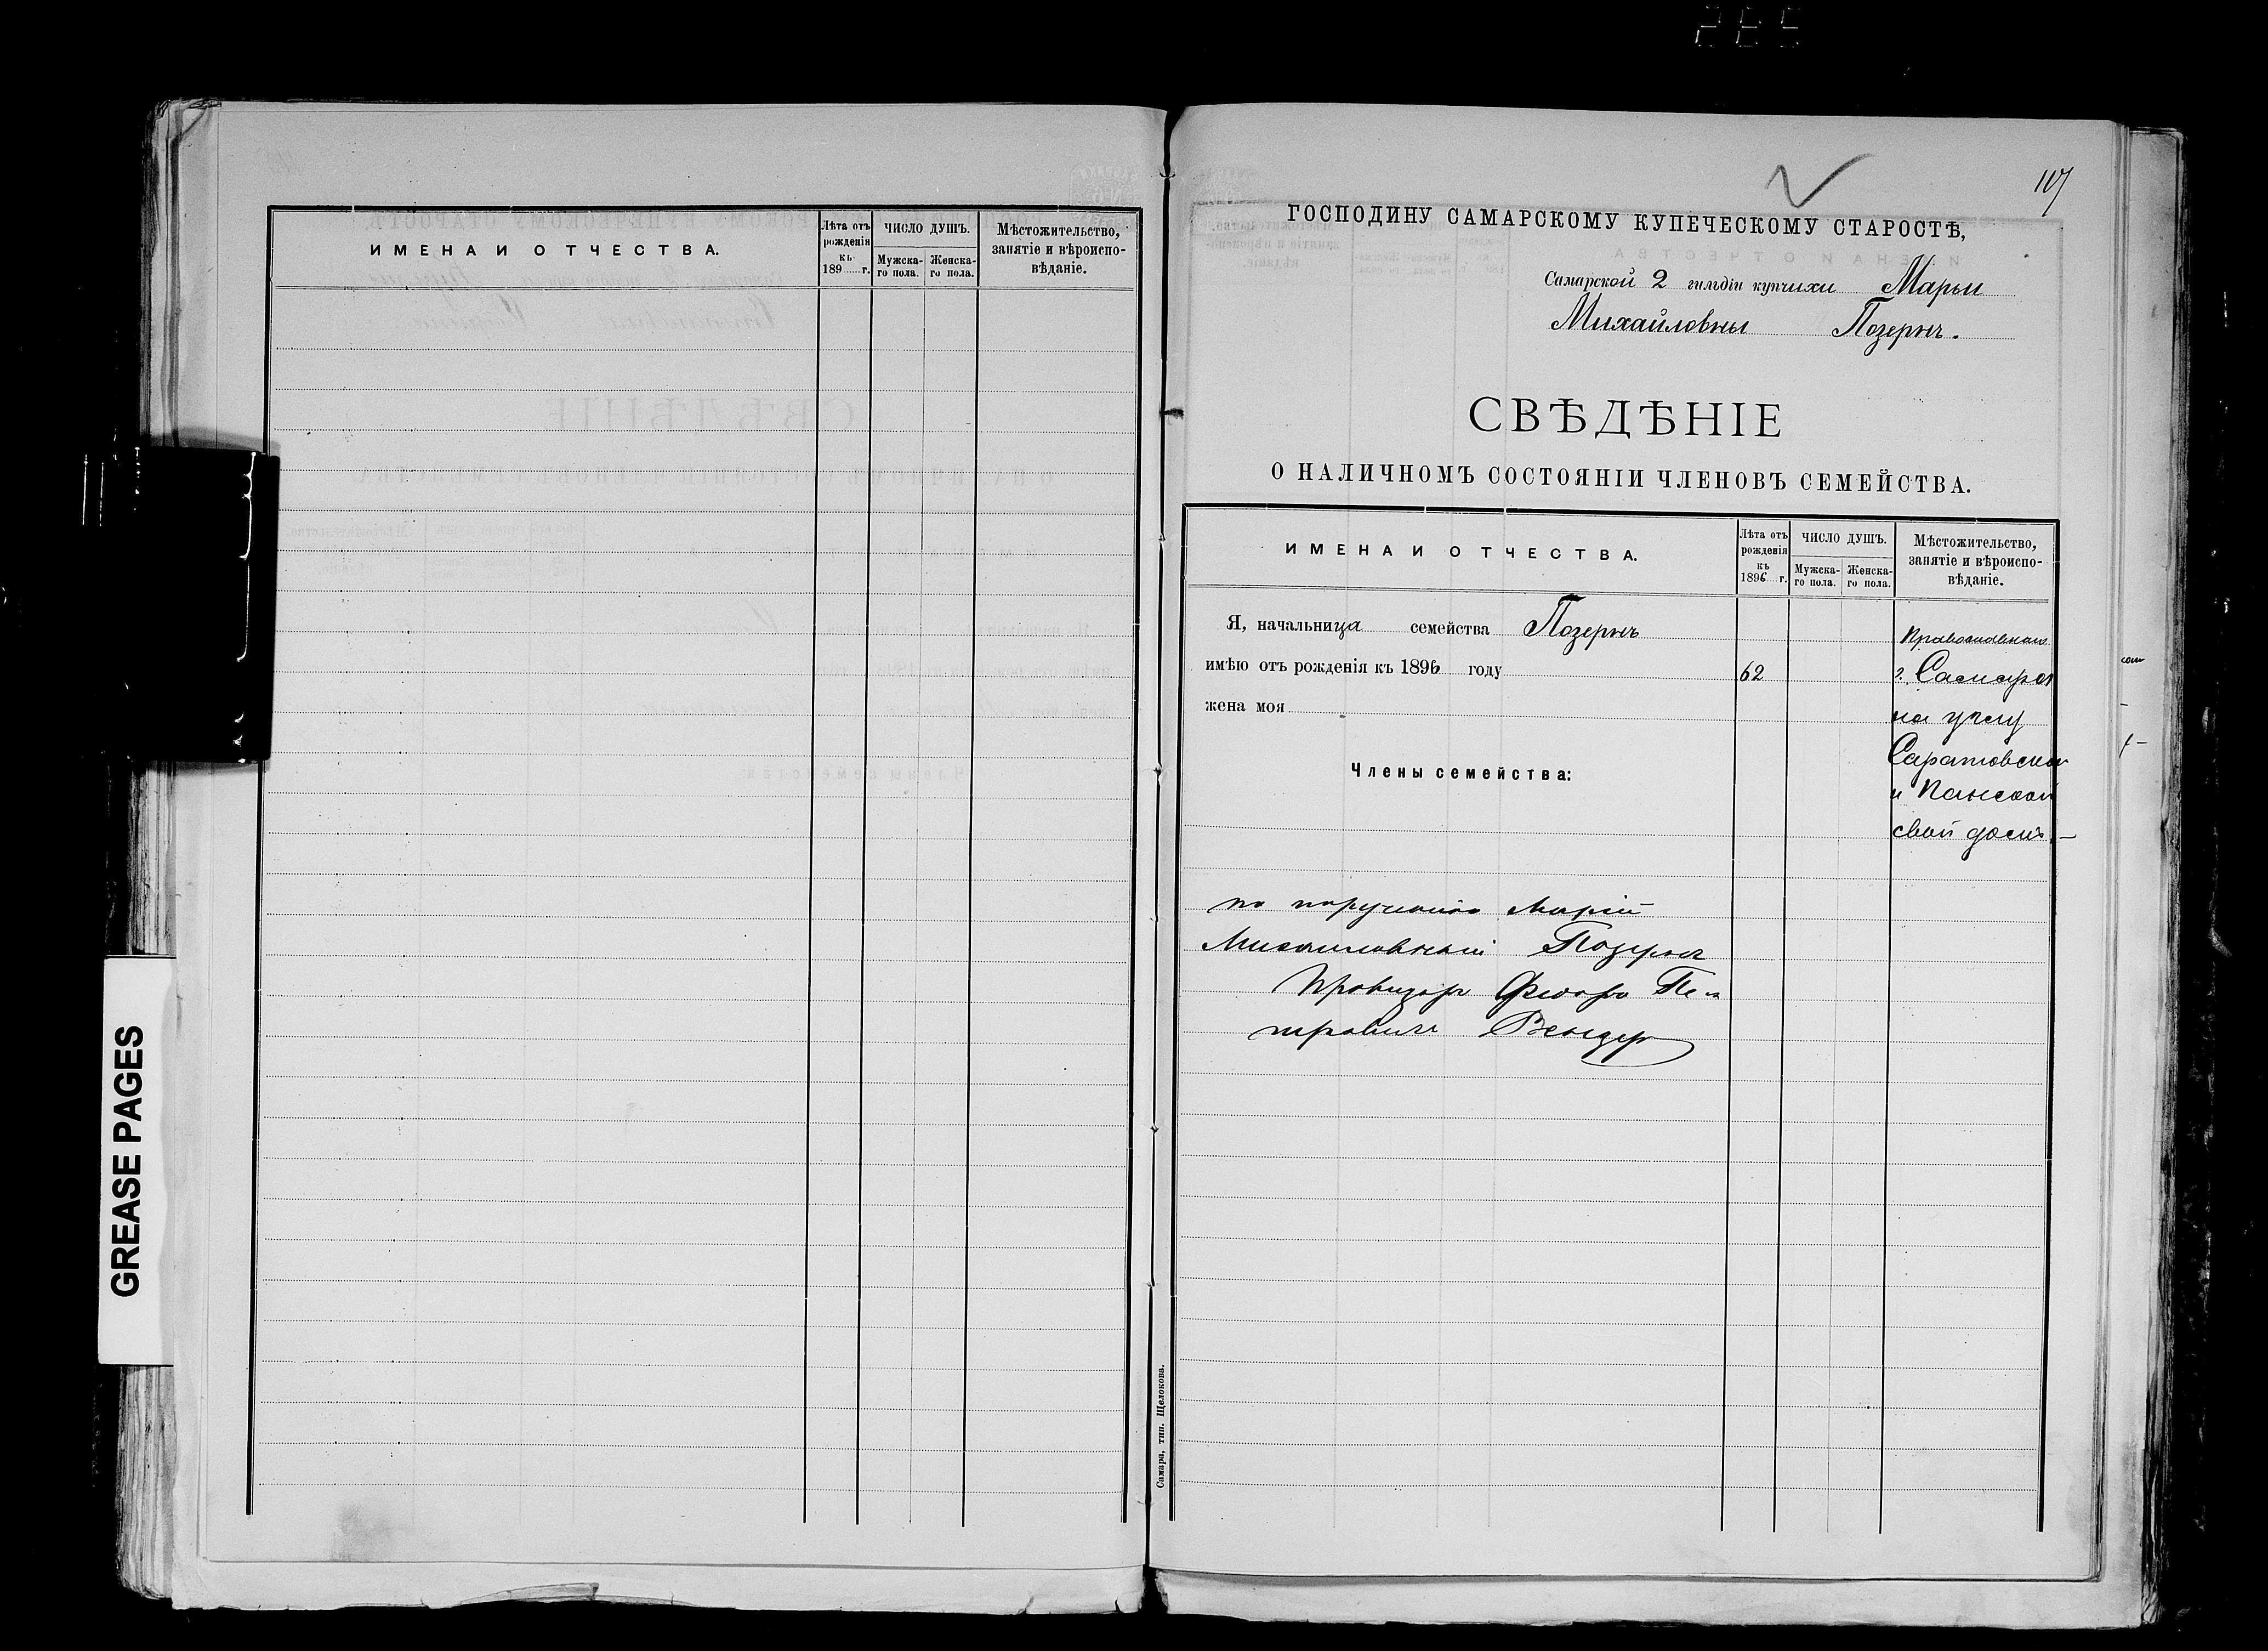 107
ИМЕНА И ОТЧЕСТВА.
Лѣта отъ рожденія къ 189 г.
ЧИСЛО ДУШЪ.
Мужска-го пола.
Женска-го пола.
Мѣстожительство,
занятіе и вѣроиспо-
вѣданіе.
ГОСПОДИНУ САМАРСКОМУ КУПЕЧЕСКОМУ СТАРОСТѢ,
Самарской 2 гильдіи купчихи Марьи
Михайловны Позернъ.
СВѢДѢНІЕ
О НАЛИЧНОМЪ СОСТОЯНІИ ЧЛЕНОВЪ СЕМЕЙСТВА.
ИМЕНА И ОТЧЕСТВА.
Лѣта отъ рожденія къ 1896 г.
ЧИСЛО ДУШЪ.
Мужска-го пола.
Женска-го пола.
Мѣстожительство,
занятіе и вѣроиспо-
вѣданіе.
Я, начальница семейства Позернъ
имѣю отъ рожденія къ 1896 году 62
жена моя
Члены семейства:
Православная
г. Самара
на углу
Саратовской
и Панской
свой домъ.—
по порученію Маріи
Михаиловный Позернъ
Провизоръ Фюоръ Пе-
тровичъ
Самара, тип. Щелокова.
GREASE PAGES